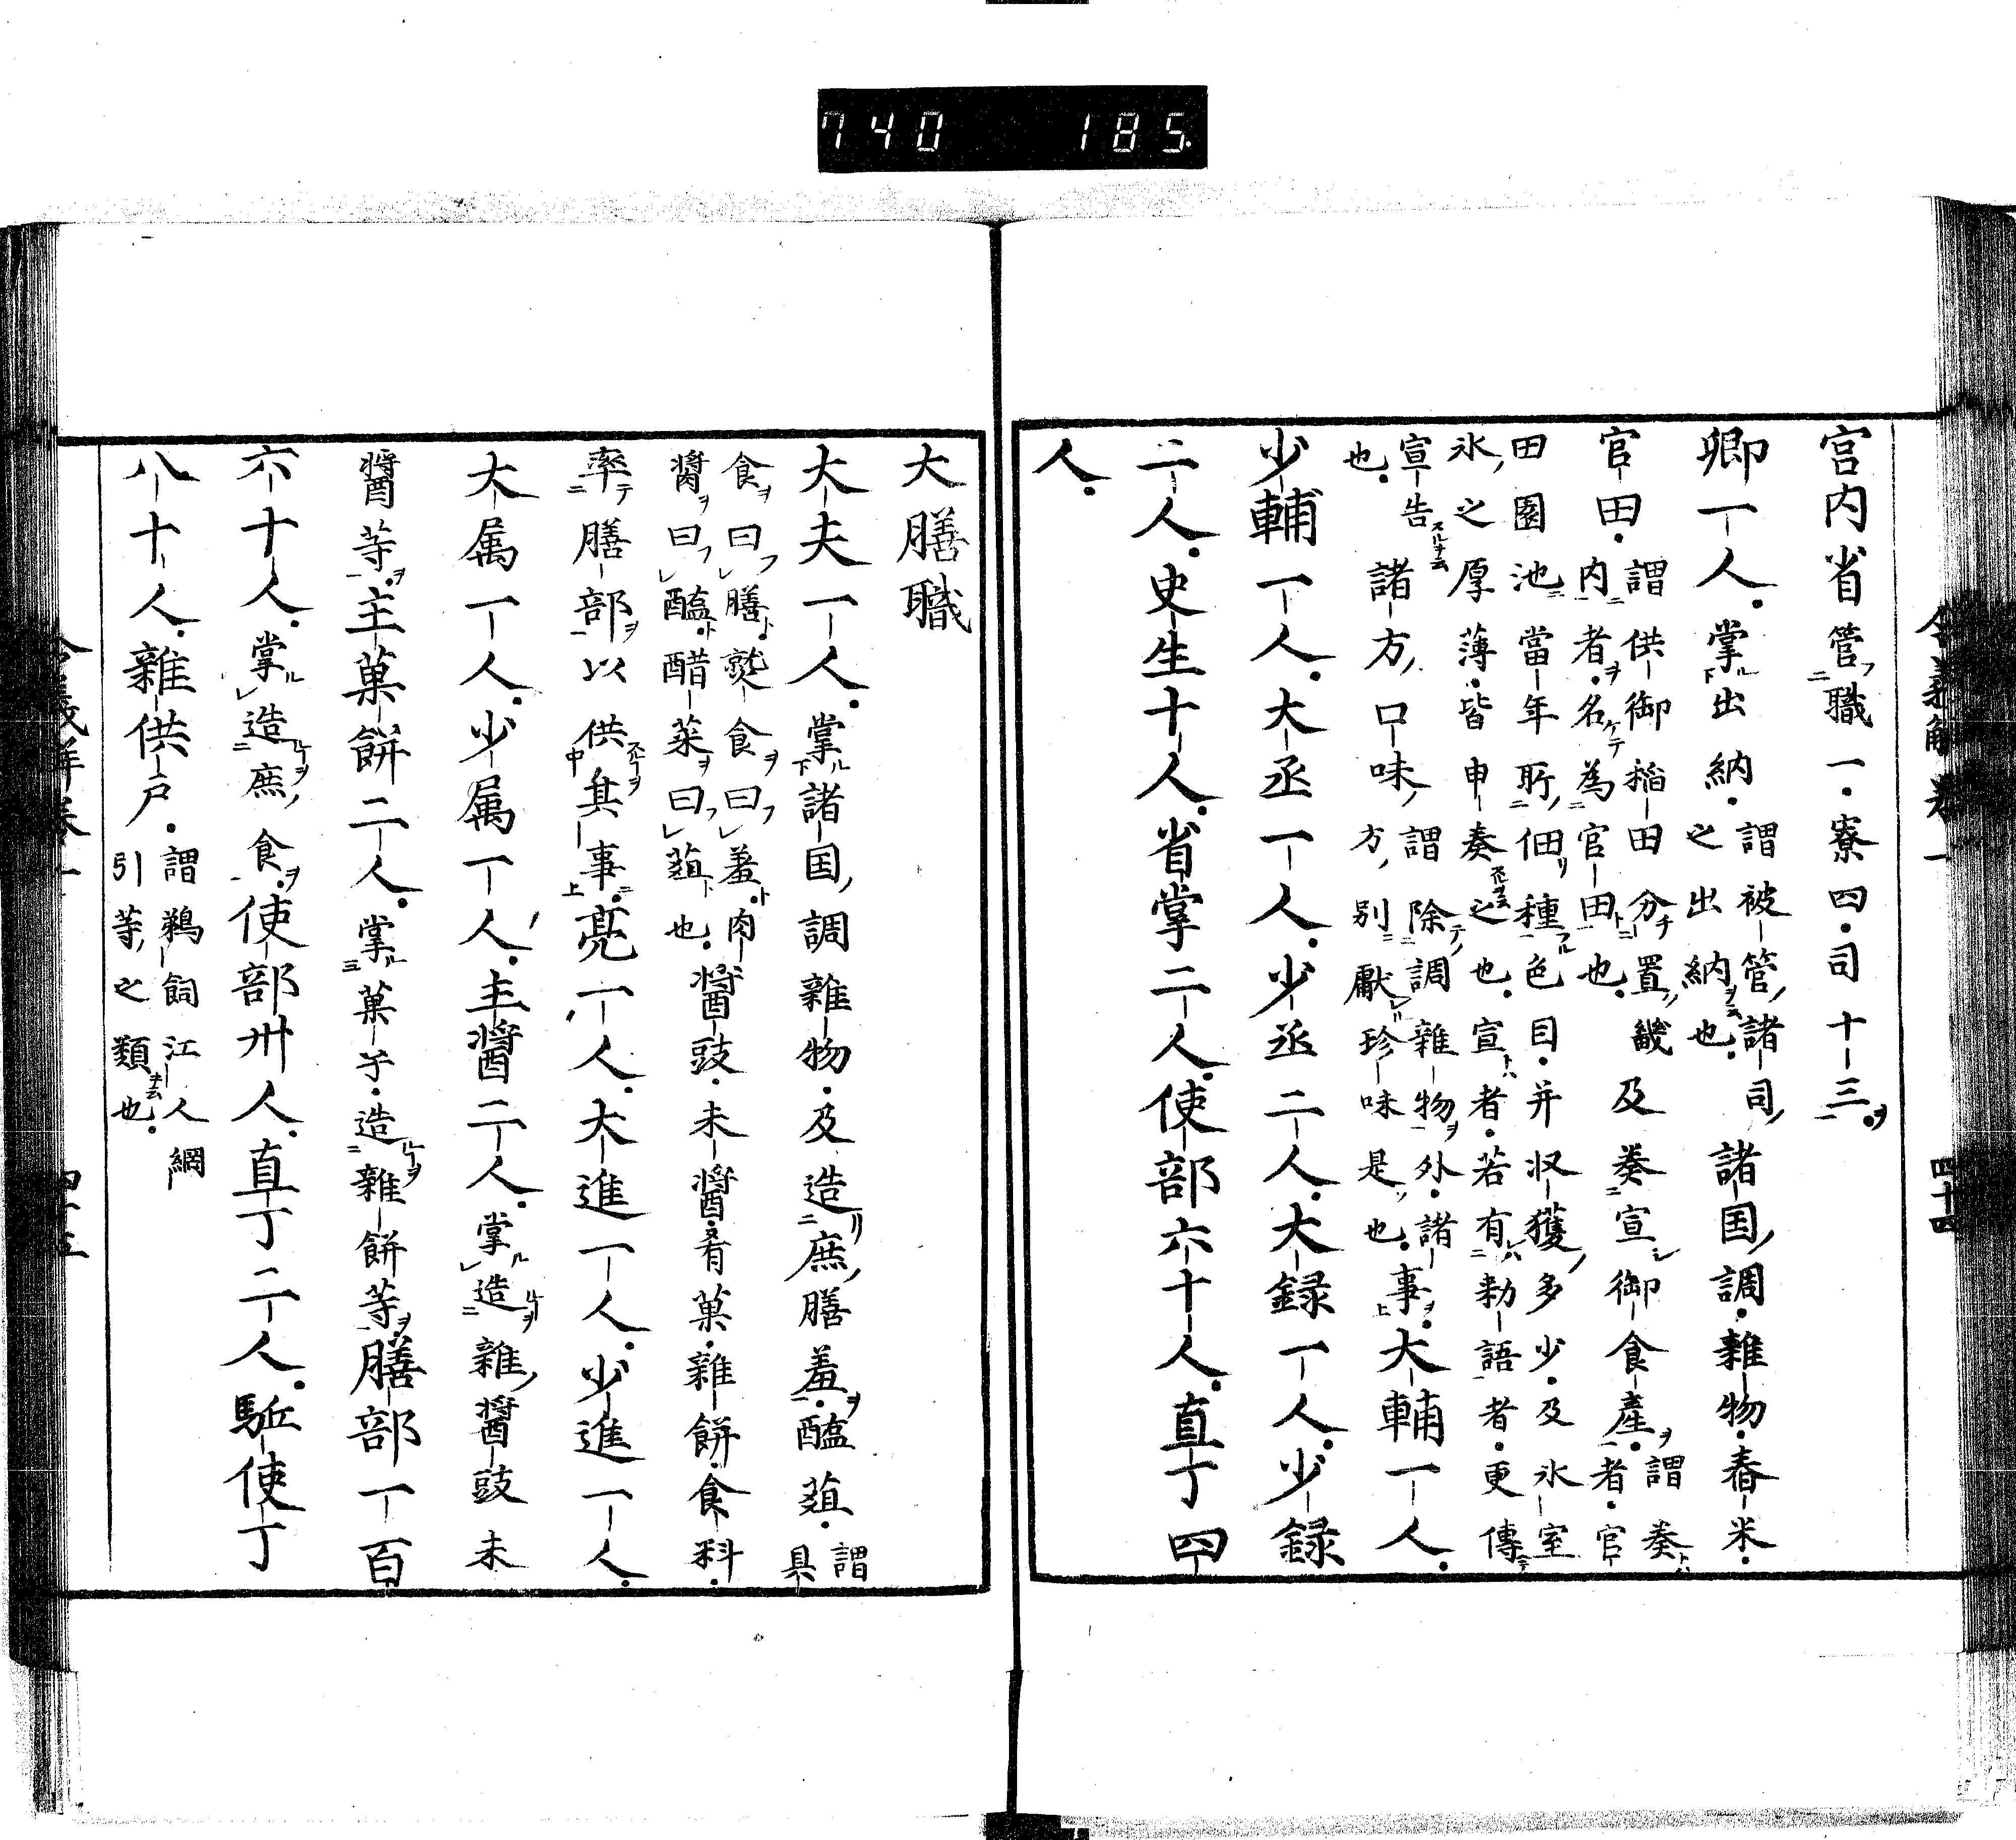 740 185
宮内省管職一・寮四・司十三
卿一人・掌出納・
謂被管諸司
之出納也・
諸国調・雜物・舂米・
官田・
謂供御稲田分置畿
内者・名為官田也・
及奏宣御食産・
謂奏
者・官
田園池當年所佃種色目・并収獲多少・及氷室
氷之厚薄・皆申奏之也・宣者・若有勅語者・更傳
宣告
也・
諸方口味
謂除調雜物外・諸
方別獻珍味是也・
事・大輔一人・
少輔一人・大丞一人・少丞二人・大録一人・少録
二人・史生十人・省掌二人・使部六十人・直丁四
人・
四十四
大膳職
大夫一人・掌諸国調雜物・及造庶膳羞・醢葅・
謂
具
食曰膳・熟食曰羞・肉
醤曰醢・醋菜曰葅也・
醤豉・未醤・肴菓・雜餅・食料・
率膳部以供其事・亮一人・大進一人・少進一人・
大属一人・少属一人・主醤二人・掌造雜醤豉未
醤等・主菓餅二人・掌菓子・造雜餅等・膳部一百
六十人・掌造庶食・使部卅人・直丁二人・駈使丁
八十人・雜供戸・
謂鵜飼江人網
引等之類也・